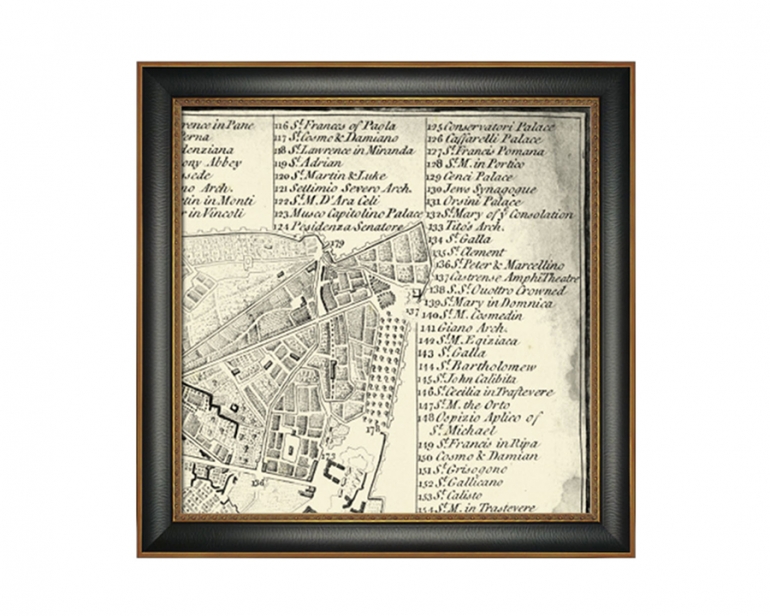 rence in Pane
erna
denziana
ony Abbey
sede
no Arch.
tin in Monti
r in Vincoli
116 St. Frances of Paola
117 St. Cosmo & Damiano
118 St. Lawrence in Miranda
119 St. Adrian
120 St. Martin & Luke
121 Settimio Severo Arch.
122 St. M. D'Ara Celi
123 Musco Capitolino Palace
124 Pesidenza Senatore
125 Conservatori Palace
126 Caffarelli Palace
127 St. Francis Pomana
128 St. M. in Portico
129 Cenci Palace
130 Jews Synagogue
131 Orsini Palace
132 St. Mary of ye Consolation
133 Tito's Arch.
134 St. Galla
135 St. Clement
136 St. Peter & Marcellino
137 Castrense AmphiTheatre
138 S.St. Quottro Crowned
139 St. Mary in Domnica
140 St. M. Cosmedin
141 Giano Arch.
142 St. M. Egiziaca
143 St. Galla
144 St. Bartholomew
145 St. John Calibita
146 St. Cecilia in Trastevere
147 St. M. the Orto
148 Ospizio Aplico of
St. Michael
149 St. Francis in Ripa
150 Cosmo & Damian
151 St. Grisogono
152 St. Gallicano
153 St. Calisto
154 St. M. in Trastevere
179
137
178
173
134